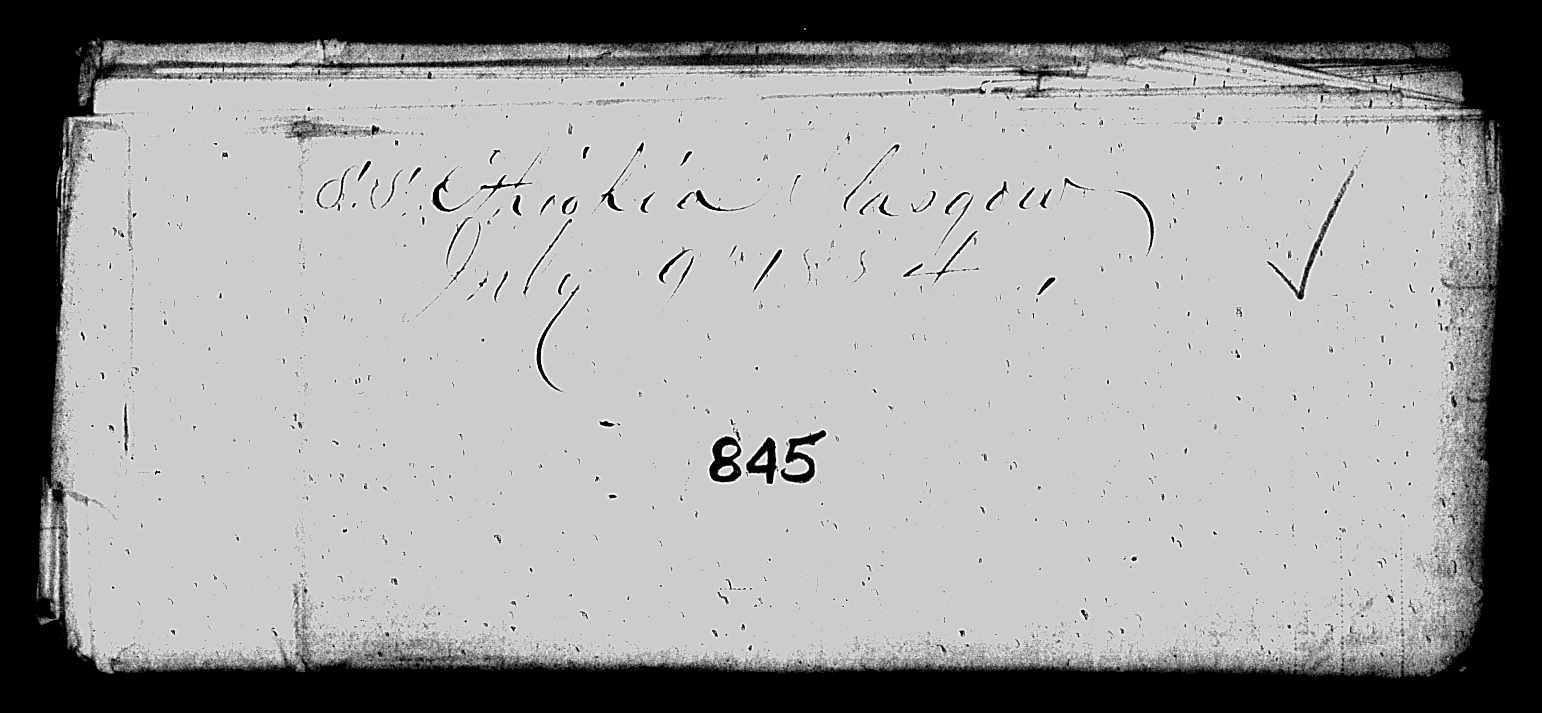 S.S. Ethiopia Glasgow
July 9" 1884.
845